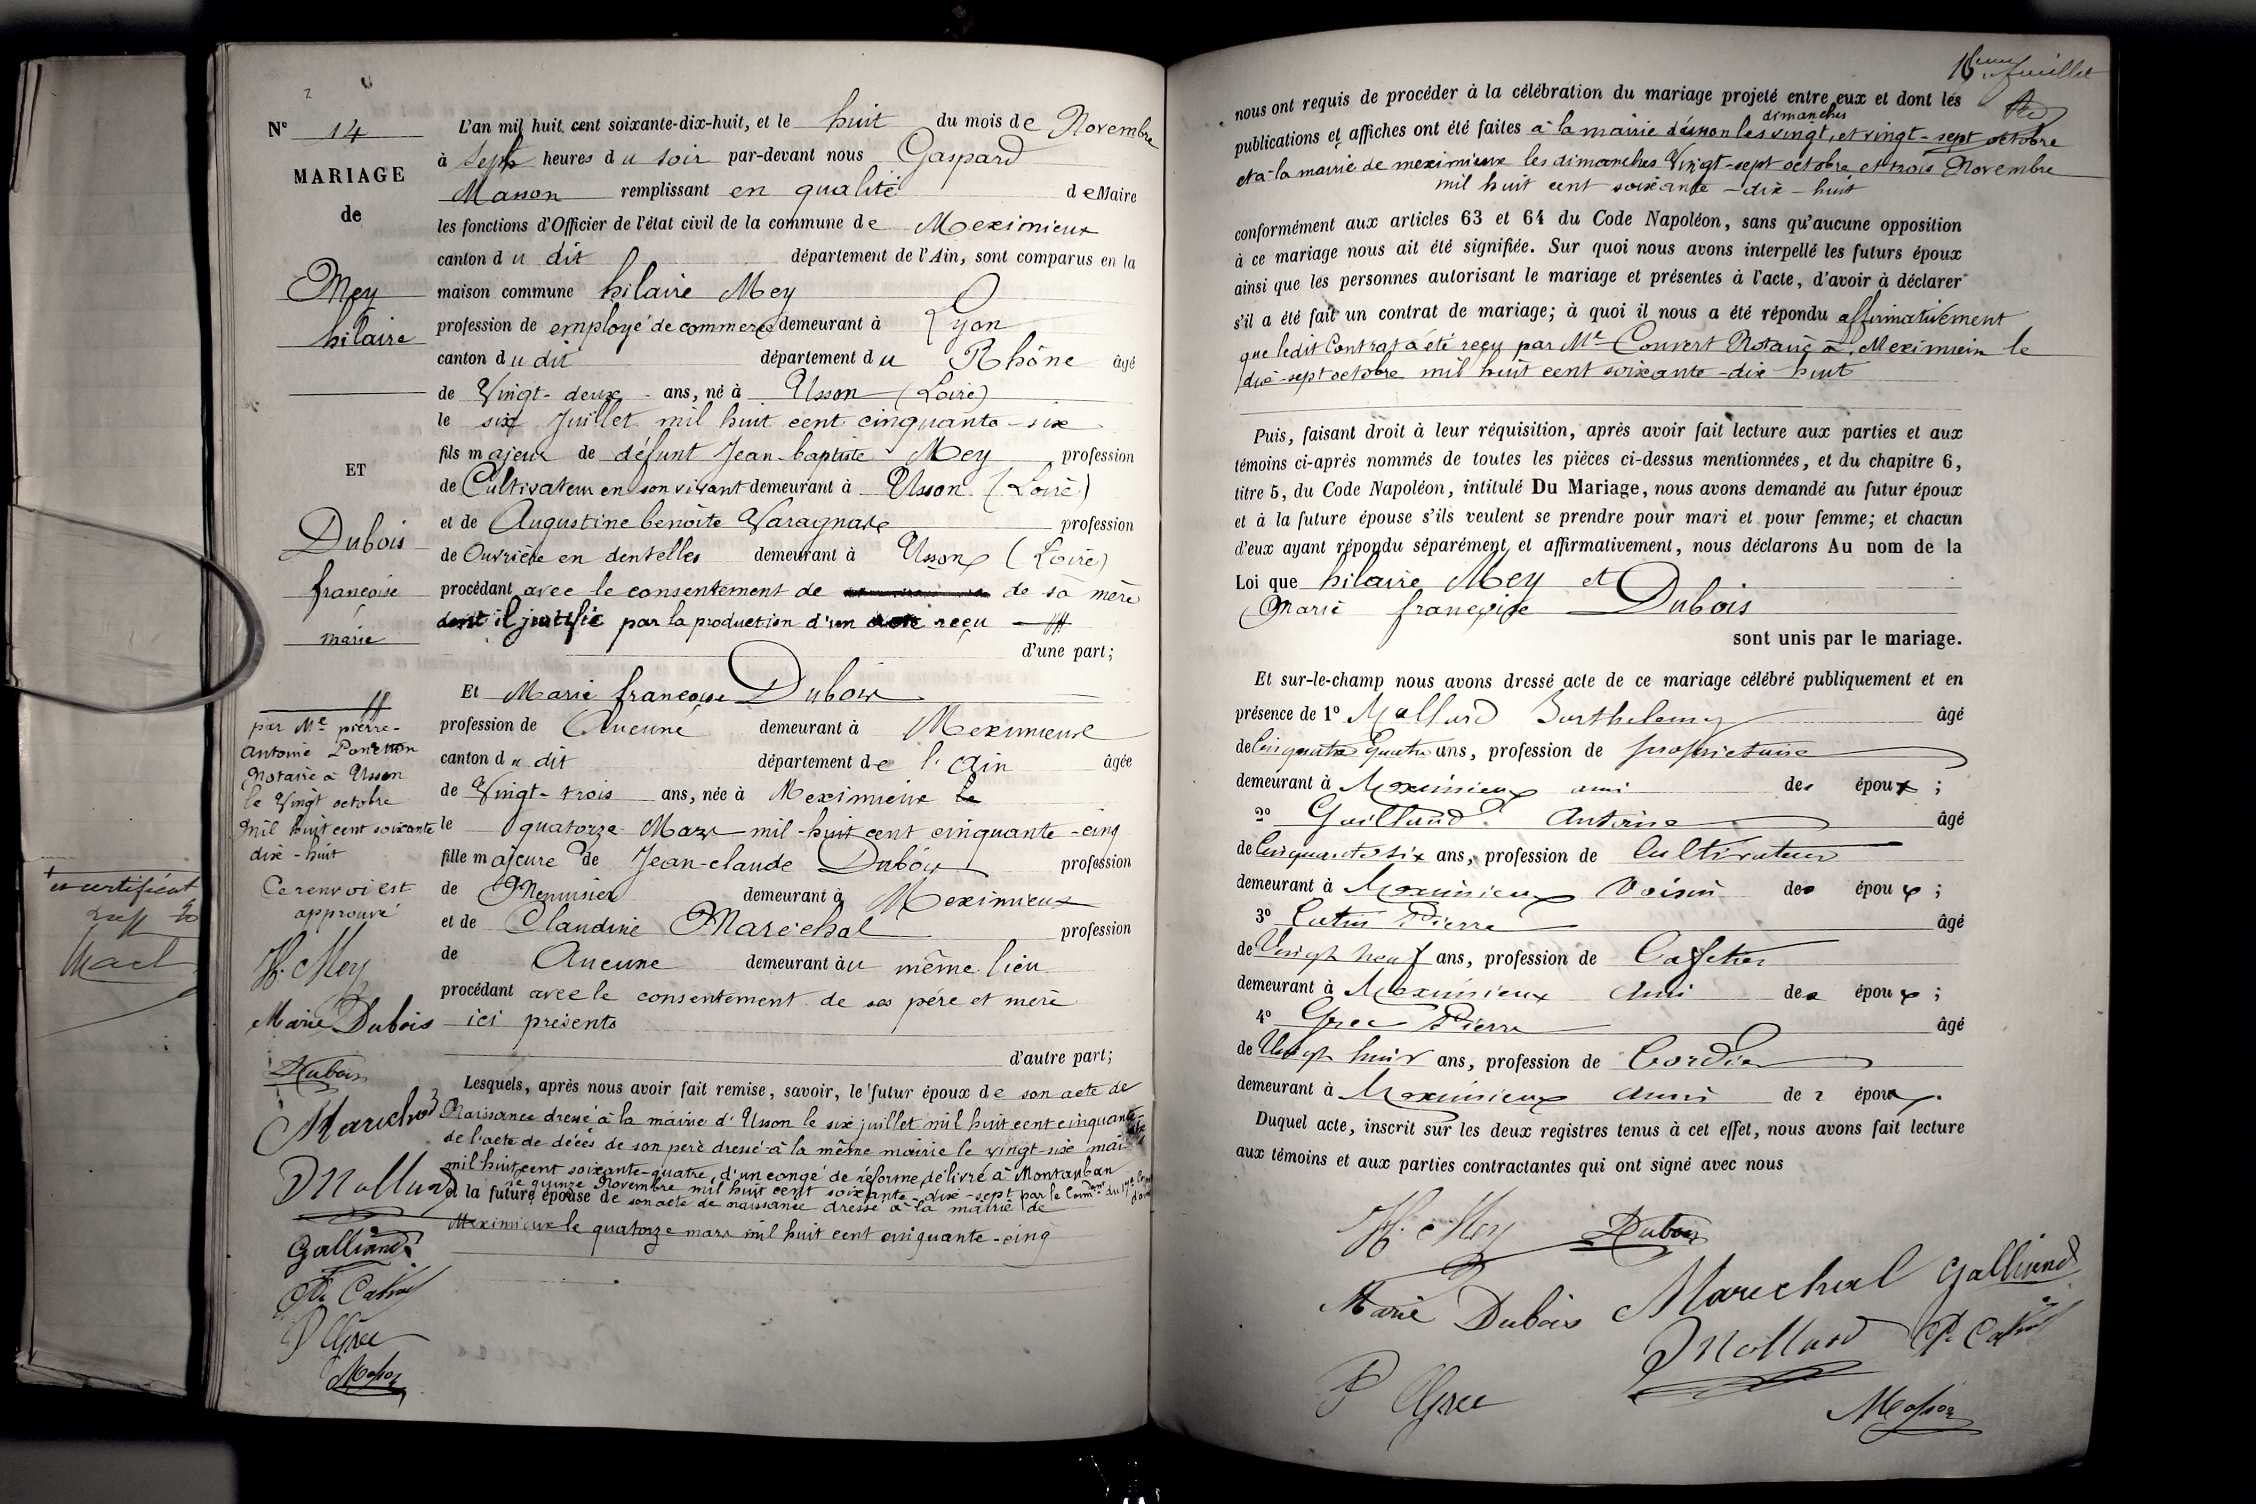 N° 14
MARIAGE
de
Mey
hilaire
ET
Dubois
françoise
marie
L'an mil huit cent soixante-dix-huit, et le huit du mois de Novembre
à sept heures du soir par-devant nous Gaspard
Masson remplissant en qualité de Maire
les fonctions d'Officier de l'état civil de la commune de Meximieux
canton du dit département de l'Ain, sont comparus en la
maison commune hilaire Mey
profession de employé de commerce demeurant à Lyon
canton du dit département du Rhône âgé
de Vingt-deux ans, né à Usson (Loire)
le six Juillet mil huit cent cinquante-six
fils majeur de défunt Jean-baptiste Mey profession
de Cultivateur en son vivant demeurant à Usson (Loire)
et de Augustine benoîte Varagnat profession
de Ouvrière en dentelles demeurant à Usson (Loire)
procédant avec le consentement de de sa mère
dont il justifie par la production d'un acte reçu #
d'une part;
Et Marie françoise Dubois
profession de Aucune demeurant à Meximieux
canton du dit département de l'Ain âgée
de Vingt-trois ans, née à Meximieux le
le quatorze Mars mil-huit cent cinquante-cinq
fille majeure de Jean-claude Dubois profession
de Menuisier demeurant à Meximieux
et de Claudine Maréchal profession
de Aucune demeurant au même lieu
procédant avec le consentement de ses père et mère
ici présents
d'autre part;
Lesquels, après nous avoir fait remise, savoir, le futur époux de son acte de
Naissance dressé à la mairie d'Usson le six juillet mil huit cent cinquante-six
de l'acte de décès de son père dressé à la même mairie le vingt-six mai
mil huit cent soixante-quatre, d'un congé de réforme délivré à Montauban
le quinze Novembre mil huit cent soixante-dix-sept par le Comdant du 17e
et la future épouse de son acte de naissance dressé à la mairie de
Meximieux le quatorze mars mil huit cent cinquante-cinq
#
par Me pierre-
Antoine
Notaire à Usson
le Vingt octobre
mil huit cent soixante
dix-huit
Ce renvoi est
approuvé
H. Mey
Marie Dubois
Dubois
Marechal
Mollard
Galliand
P. Catin
P Grec
Masson
16eme feuillet
nous ont requis de procéder à la célébration du mariage projeté entre eux et dont les
dimanches
publications et affiches ont été faites à la mairie d'usson les vingt, et vingt-sept octobre
et à la mairie de meximieux les dimanches Vingt-sept octobre et trois Novembre
mil huit cent soixante-dix-huit
conformément aux articles 63 et 64 du Code Napoléon, sans qu'aucune opposition
à ce mariage nous ait été signifiée. Sur quoi nous avons interpellé les futurs époux
ainsi que les personnes autorisant le mariage et présentes à l'acte, d'avoir à déclarer
s'il a été fait un contrat de mariage; à quoi il nous a été répondu affirmativement
que ledit Contrat a été reçu par Me Convert Notaire à Meximieux le
dix-sept octobre mil huit cent soixante-dix-huit
Puis, faisant droit à leur réquisition, après avoir fait lecture aux parties et aux
témoins ci-après nommés de toutes les pièces ci-dessus mentionnées, et du chapitre 6,
titre 5, du Code Napoléon, intitulé Du Mariage, nous avons demandé au futur époux
et à la future épouse s'ils veulent se prendre pour mari et pour femme; et chacun
d'eux ayant répondu séparément et affirmativement, nous déclarons Au nom de la
Loi que hilaire Mey et
Marie françoise Dubois
sont unis par le mariage.
Et sur-le-champ nous avons dressé acte de ce mariage célébré publiquement et en
présence de 1° Mollard Barthelemy âgé
de Cinquante quatre ans, profession de propriétaire
demeurant à Meximieux ami des époux;
2° Antoine âgé
de Cinquante six ans, profession de Cultivateur
demeurant à Meximieux voisin des époux;
3° Catin Pierre âgé
de Vingt neuf ans, profession de Cafetier
demeurant à Meximieux ami des époux;
4° Grec Pierre âgé
de Vingt huit ans, profession de Cordier
demeurant à Meximieux ami des époux.
Duquel acte, inscrit sur les deux registres tenus à cet effet, nous avons fait lecture
aux témoins et aux parties contractantes qui ont signé avec nous
H. Mey Dubois
Marie Dubois Marechal Galliand
Mollard P. Catin
P Grec
Masson